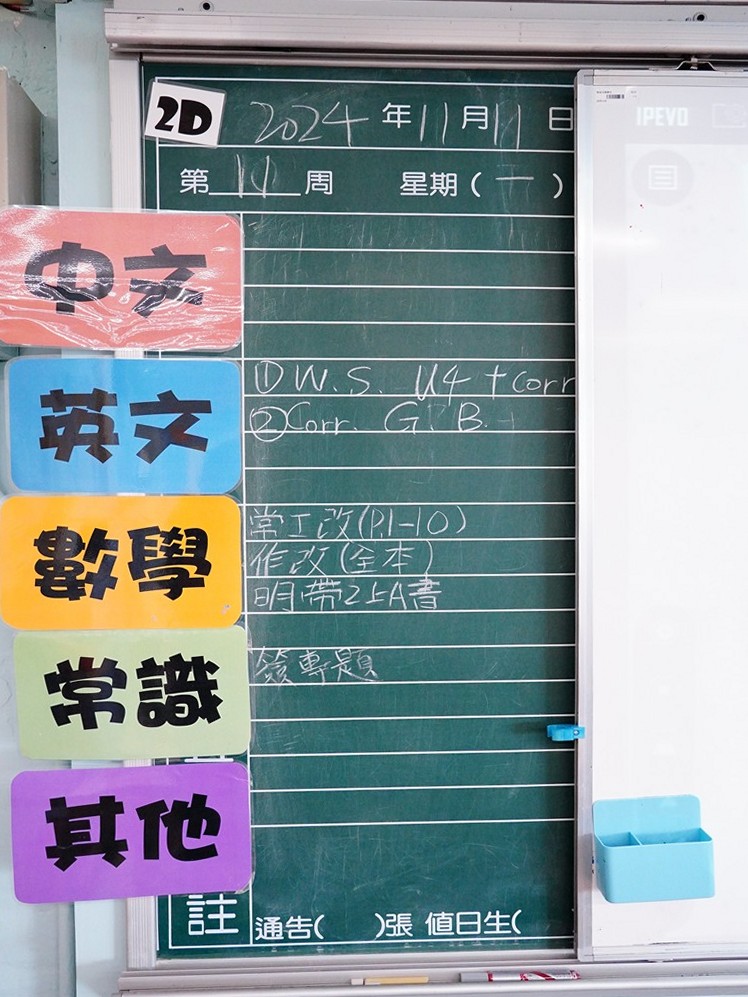 2D
2024年11月11日
IPEVO
第 14 周 星期(一)
中文
英文
①W.S. U4 + Corr
②Corr. G.B.
數學
常工改(P.1-10)
作改(全本)
明帶2上A書
常識
簽專題
其他
註
通告( )張 值日生(